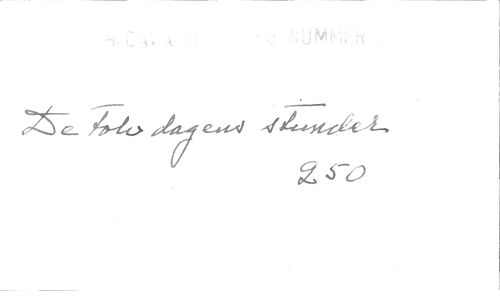 NUMMER
De tolv dagens stunder
250